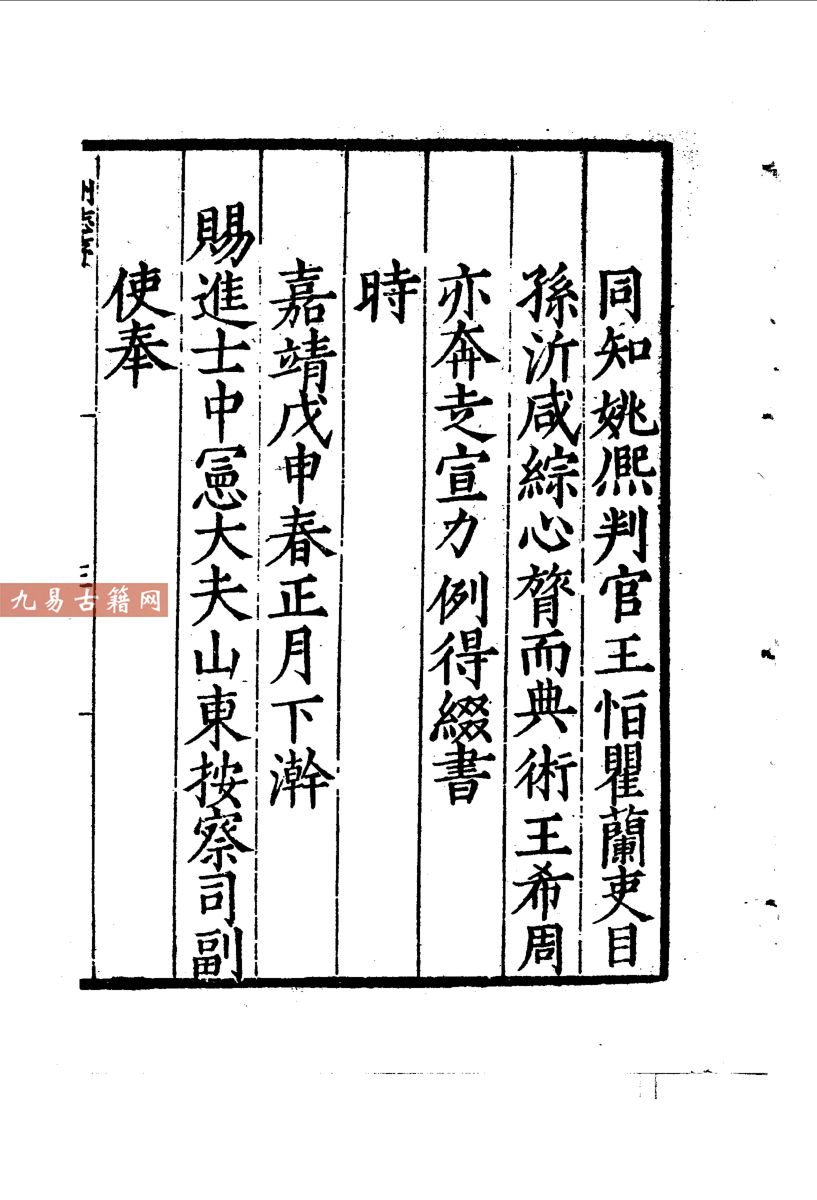 同知姚熈判官王怕瞿蘭吏目
孫沂咸綜心膂而典術王希周
亦奔走宣力例得綴書
時
嘉靖戊申春正月下澣
賜進士中憲大夫山東按察司副
使奉
州志序
三
九易古籍网